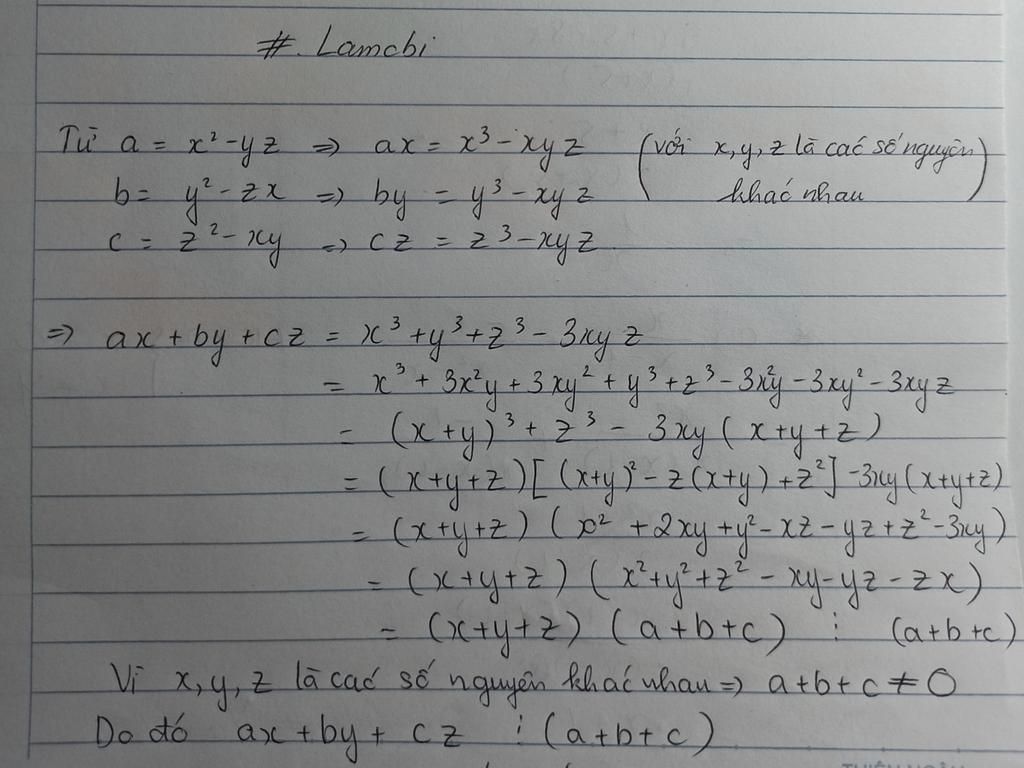 #. Lamchi
Từ a = x² - yz ⇒ ax = x³ - xyz (với x, y, z là các số nguyên
b = y² - zx ⇒ by = y³ - xyz khác nhau)
c = z² - xy ⇒ cz = z³ - xyz
⇒ ax + by + cz = x³ + y³ + z³ - 3xyz
= x³ + 3x²y + 3xy² + y³ + z³ - 3x²y - 3xy² - 3xyz
= (x+y)³ + z³ - 3xy(x+y+z)
= (x+y+z)[(x+y)² - z(x+y) + z²] - 3xy(x+y+z)
= (x+y+z)(x² + 2xy + y² - xz - yz + z² - 3xy)
= (x+y+z)(x² + y² + z² - xy - yz - zx)
= (x+y+z)(a+b+c) ⋮ (a+b+c)
Vì x, y, z là các số nguyên khác nhau ⇒ a+b+c ≠ 0
Do đó ax + by + cz ⋮ (a+b+c)